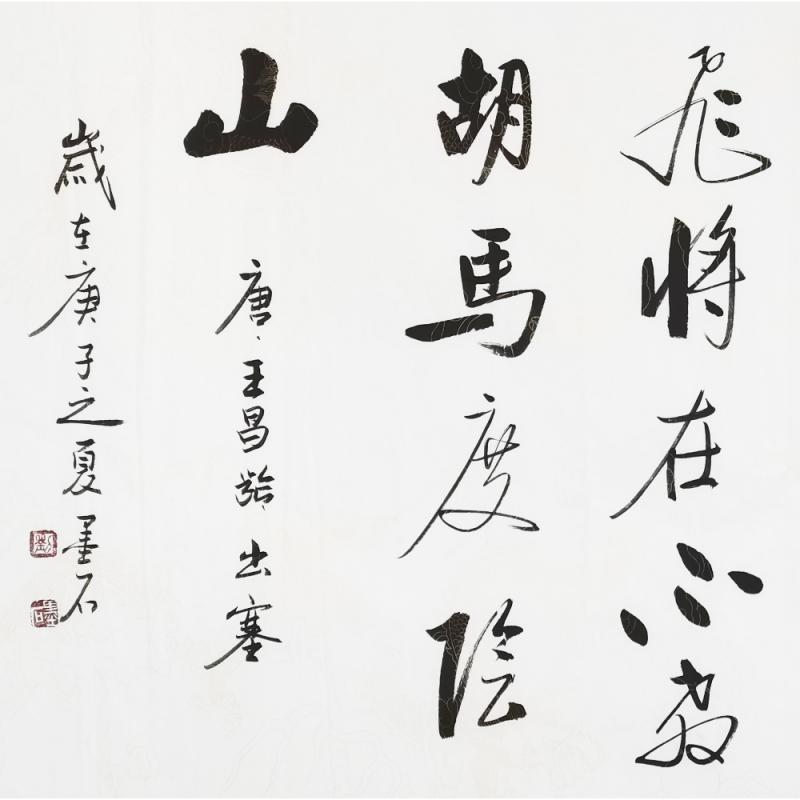 飛將在不教
胡馬度陰
山
唐、王昌齡出塞
歲在庚子之夏墨石